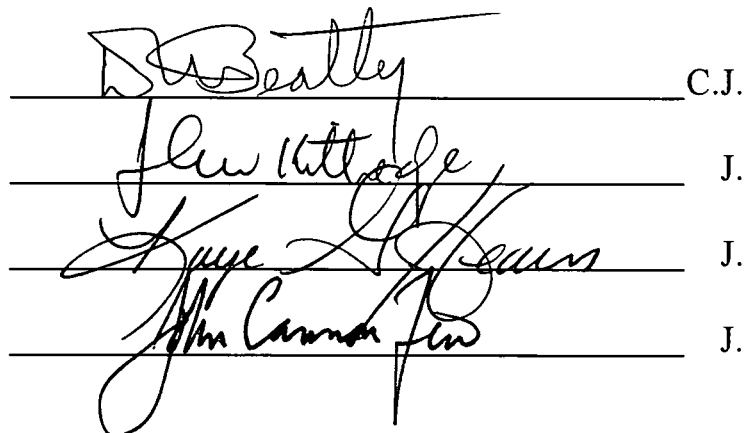 D W Beatty C.J.
John Kittredge J.
Kaye G Hearn J.
John Cannon Few J.